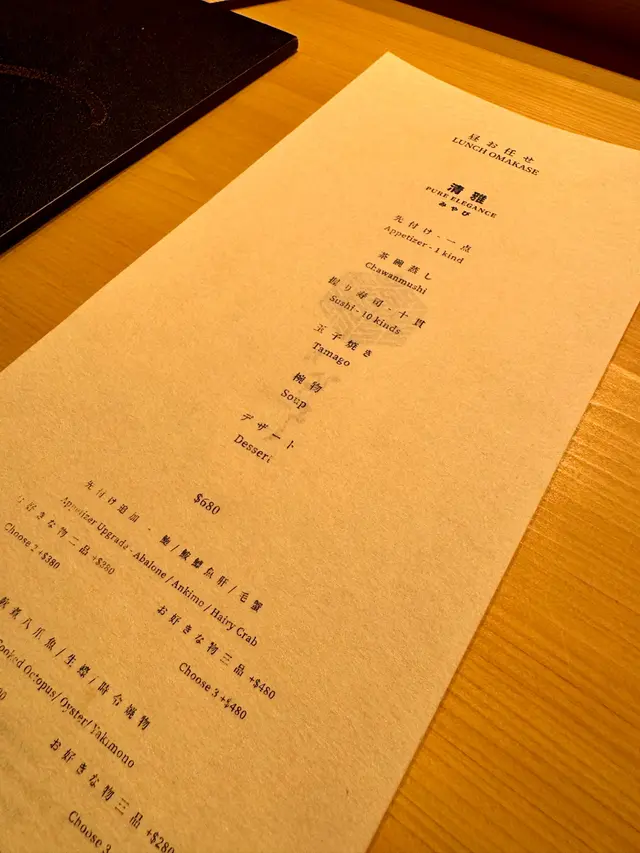 昼お任せ
LUNCH OMAKASE
清雅
PURE ELEGANCE
みやび
先付け - 一点
Appetizer - 1 kind
茶碗蒸し
Chawanmushi
握り寿司 - 十貫
Sushi - 10 kinds
玉子焼き
Tamago
椀物
Soup
デザート
Dessert
$680
先付け追加 - 鮑 / 鮟鱇魚肝 / 毛蟹
Appetizer Upgrade - Abalone / Ankimo / Hairy Crab
お好きな物二品 +$380
Choose 2 +$380
お好きな物三品 +$480
Choose 3 +$480
軟煮八爪魚 / 生蠔 / 時令燒物
Cooked Octopus / Oyster / Yakimono
お好きな物三品 +$280
Choose 3